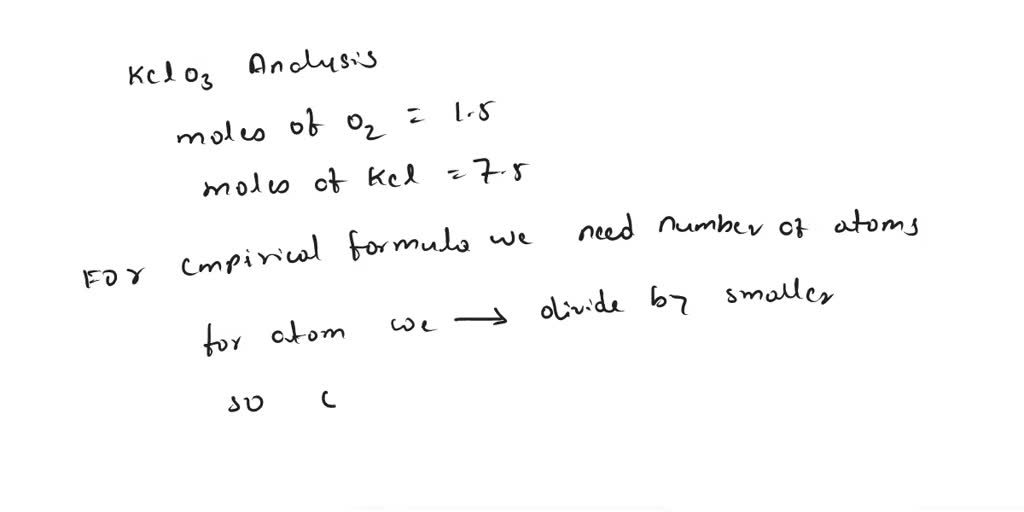 KClO3 Analysis
moles of O2 = 1.5
moles of KCl = 7.5
For empirical formula we need number of atoms
for atom we → divide by smaller
so C